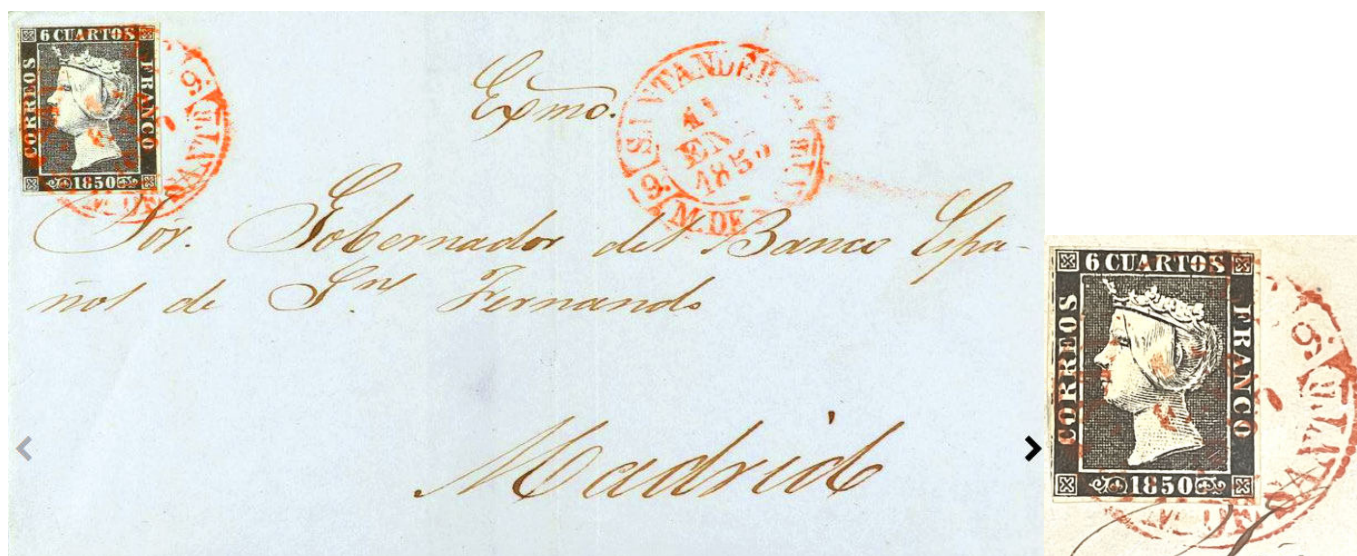 6 CUARTOS
CORREOS
FRANCO
1850
SANT
9.
Exmo.
SANTANDER
11
EN
1850
9.
M. DE
Sór. Gobernador del Banco Espa-
ñol de Sn Fernando
Madrid
6 CUARTOS
CORREOS
FRANCO
1850
SANT
9.